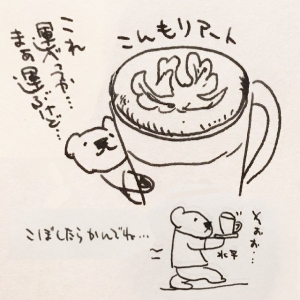 こんもりアート
これ
運べっつか…
まあ運ぶけど…
こぼしたらかんでね…
そぉぉ…
水平